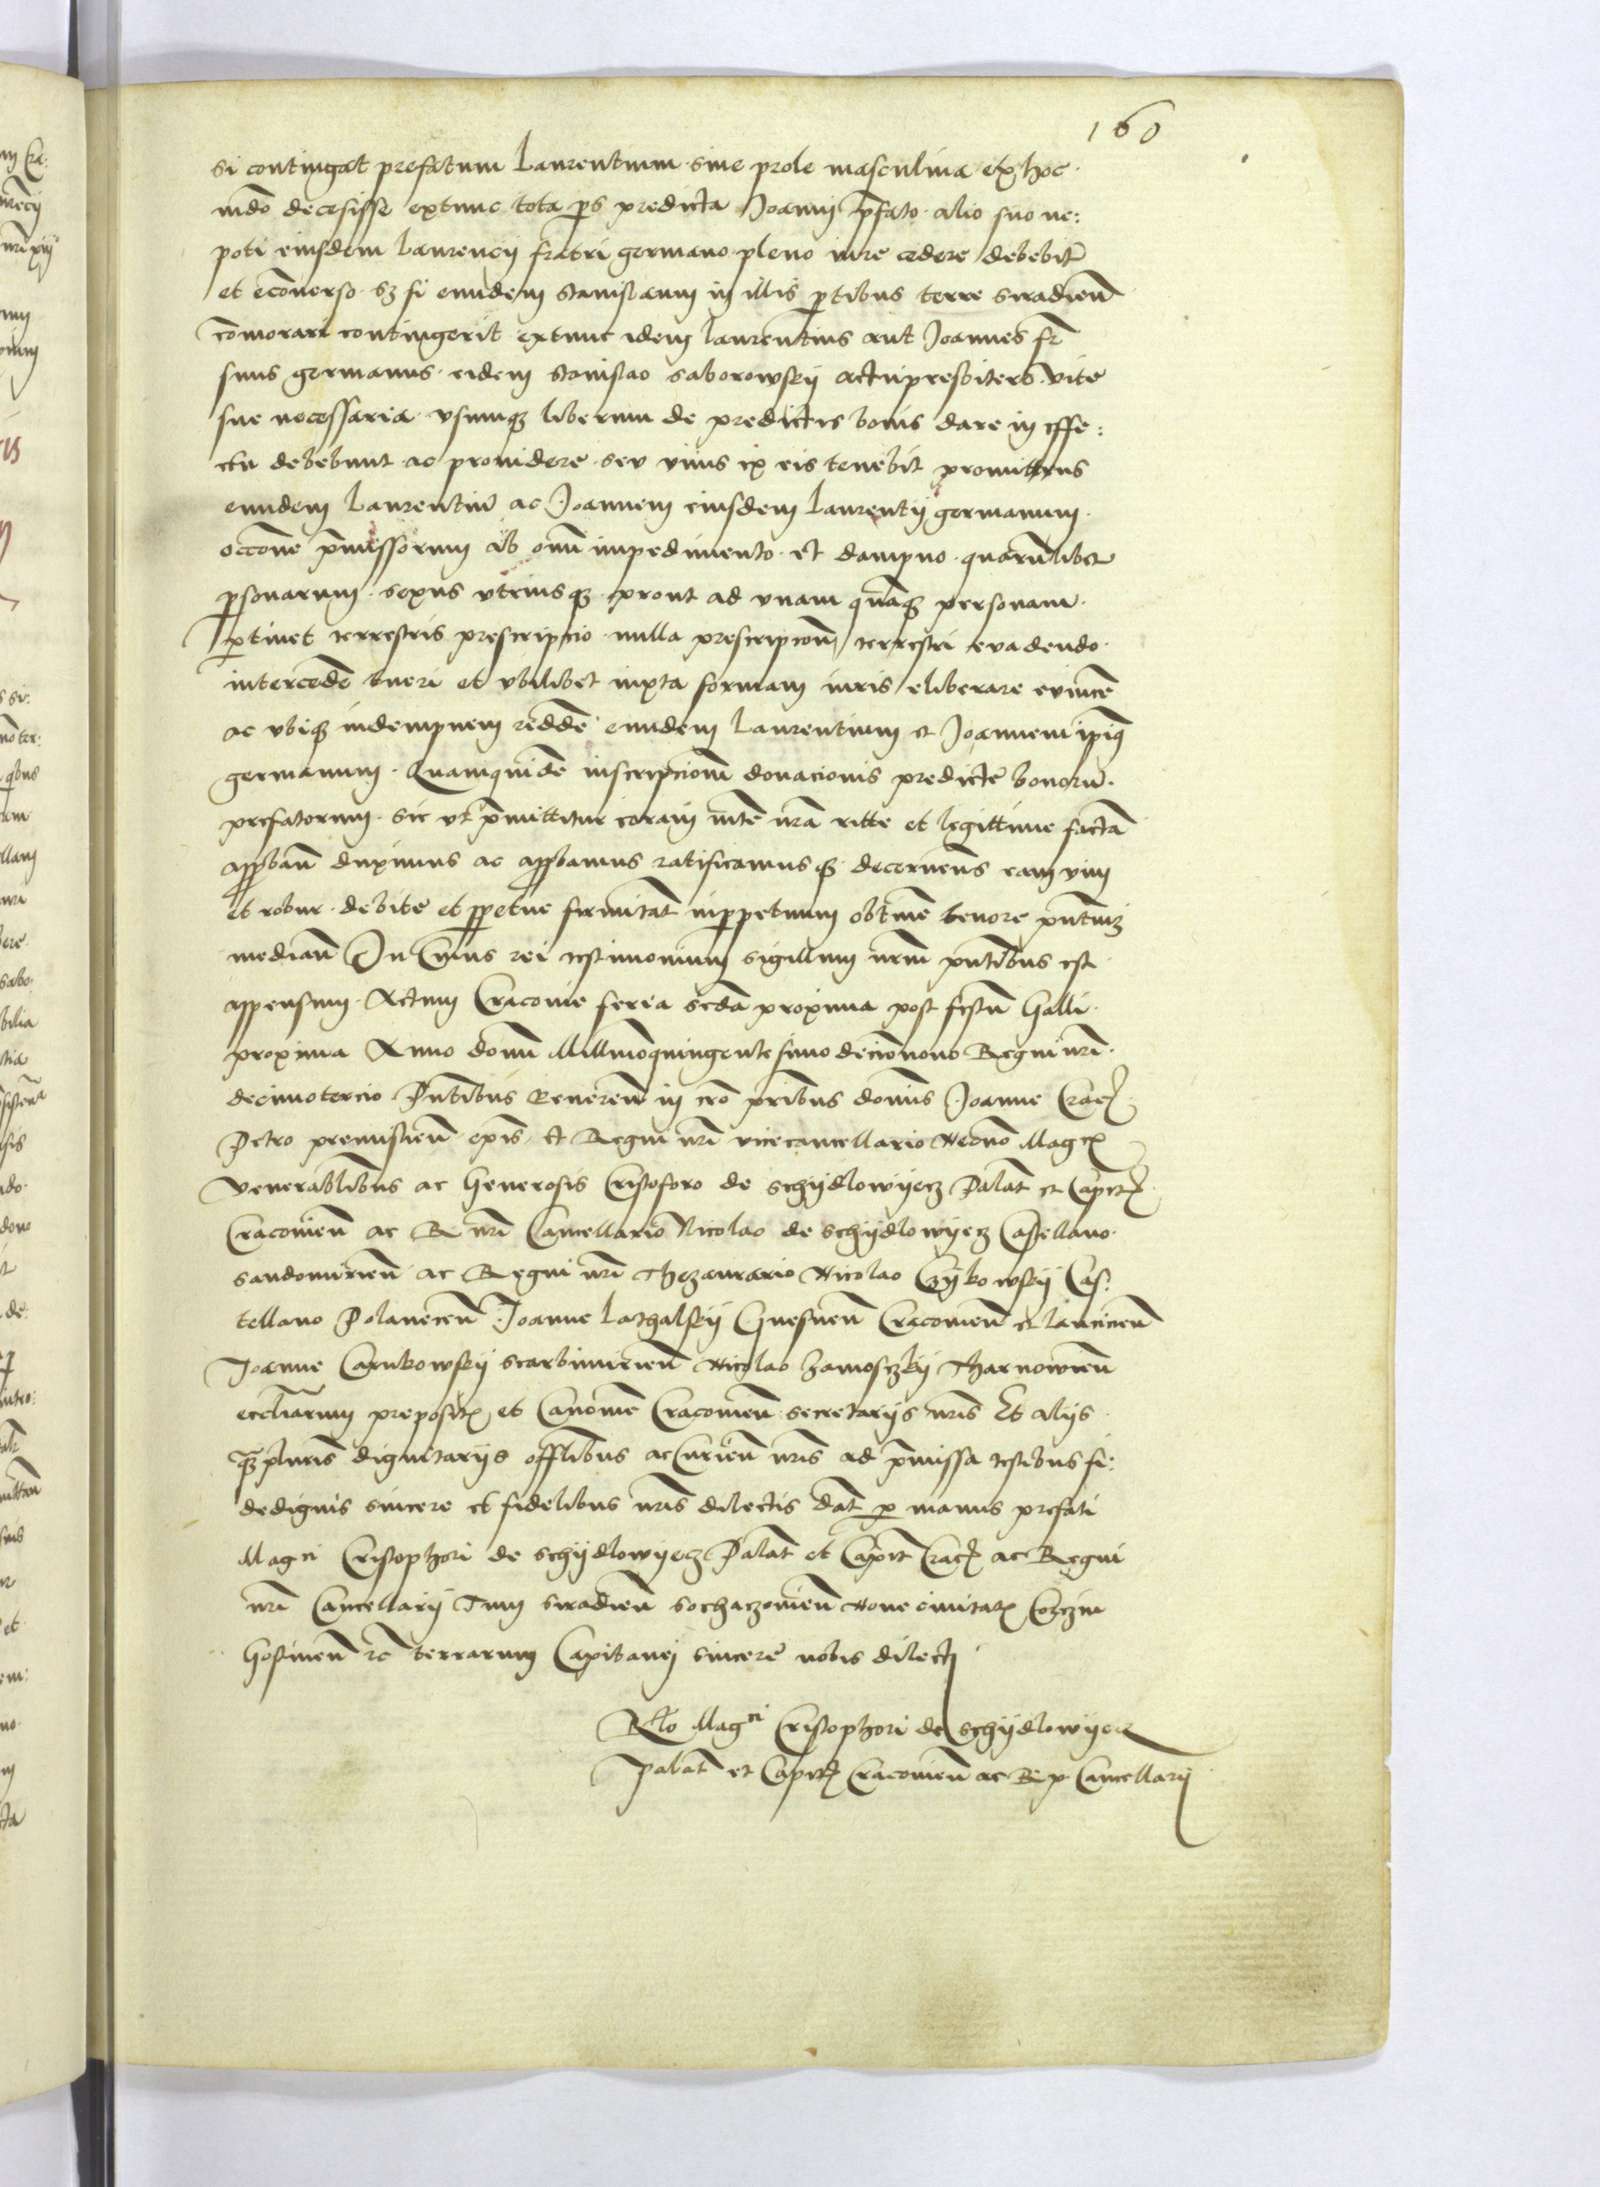 160
si contingat prefatum Laurentium sine prole masculina ex hoc
mdo decesisse extunc tota ps predicta Joanni pfato alio suo ne:
poti eiusdem Laurencij fratri germano pleno iure cedere debebit
et econuerso sz si eundem Stanislaum in illis ptibus terre Siradien
comorari contingerit extunc idem Laurentius aut Joannes fr
suus germanus eidem Stanislao Saborowskij presbitero vite
sue necessaria vsumqz liberum de predictis bonis dare in effe:
ctu debebunt ac prouidere seu vnus ex eis tenebit promittens
eundem Laurentiu ac Joannem eiusdem Laurentij germanum
occone pmissorum ab omi impedimento et dampno quarulibet
psonarum sexus vtriusqz prout ad vnam quaqz personam
ptinet terrestris prescripcio nulla prescripcom terrestri euadendo
intercede tueri et vbilibet iuxta formam iuris eliberare euince
ac vbiqz indempnem redde eundem Laurentium et Joannem ipiq
germanum Quamquide inscripcionem donacionis predicte bonoru
prefatorum sic vt pmittitur coram mte nra ritte et legittime facta
appban duximus ac appbamus ratificamusqz decernens eam vim
et robur debite et ppetue firmitat inppetuum obtine tenore pntium
median In Cuius rei testimonium sigillum nrm pntibus est
appensum Actum Cracouie feria scda proxima post festu Galli
proxima Anno domi Millmoquingentesimo decionono Regni nri
decimotercio Pntibus Reueren in cro pribus domis Joanne Crac
Petro premislien epis et Regni nri vicecancellario Necno Magcis
venerabilibus ac Generosis Cristoforo de Schijdlowijecz Palat et Capit
Cracouien ac R nri Cancellario Nicolao de Schijdlowijecz Castellano
Sandomirien ac Regni nri Thezaurario Nicolao Czijkowskij Cas:
tellano Polanecen Joanne Lathalskij Gnesnen Cracouien et Lancicien
Joanne Carnkowskij Scarbimirien Nicolao Zamosczkij Tharnowien
eccliarum preposit et Canonic Cracouien Secretarijs nris Et alijs
qz pluris dignitarijs offlibus ac Curien nris ad pmissa testibus fi:
dedignis sincere et fidelibus nris dilectis dat p manus prefati
Magci Cristophori de Schijdlowijecz Palat et Capit Crac ac Regni
nri Cancellarij Tum Siradien Sochaczouien Noue ciuitat Corczin
Gostinen rc terrarum Capitanej sincere nobis dilecti
Rlo Magci Cristophori de Schijdlowijecz
Palat et Capit Cracouien ac R p Cancellarij